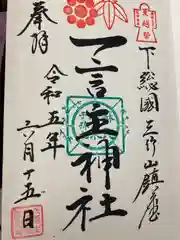 下総國三竹山鎮座
一言主神社
奉拝
令和五年
六月十五日